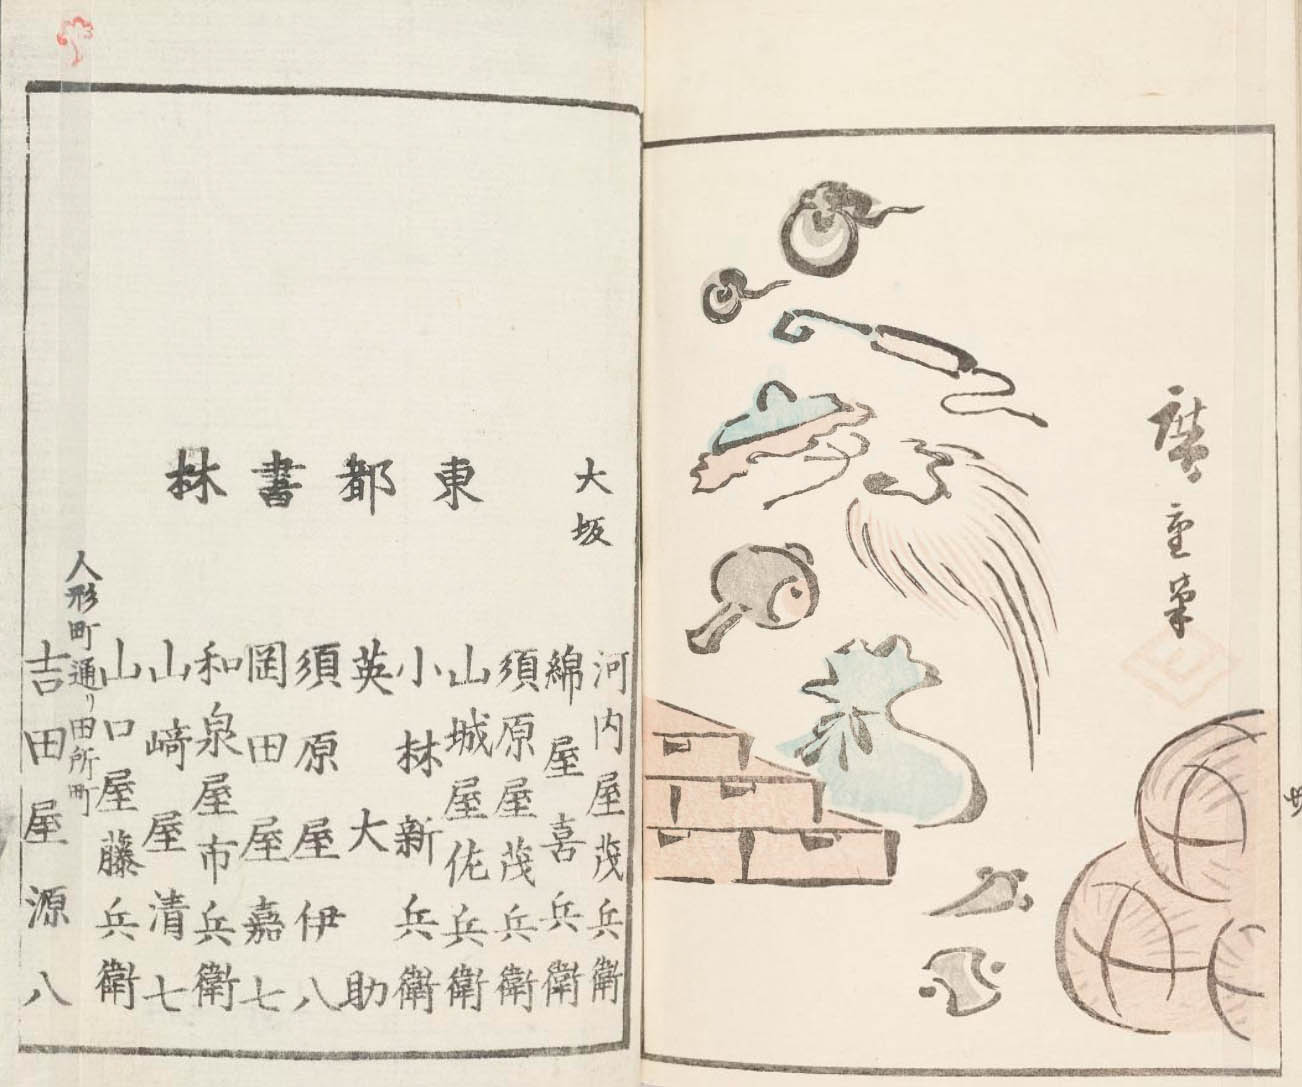 廣重筆
大坂
河内屋茂兵衛
綿屋喜兵衛
東都書林
須原屋茂兵衛
山城屋佐兵衛
小林新兵衛
英大助
須原屋伊八
岡田屋嘉七
和泉屋市兵衛
山﨑屋清七
山口屋藤兵衛
人形町通り田所町
吉田屋源八